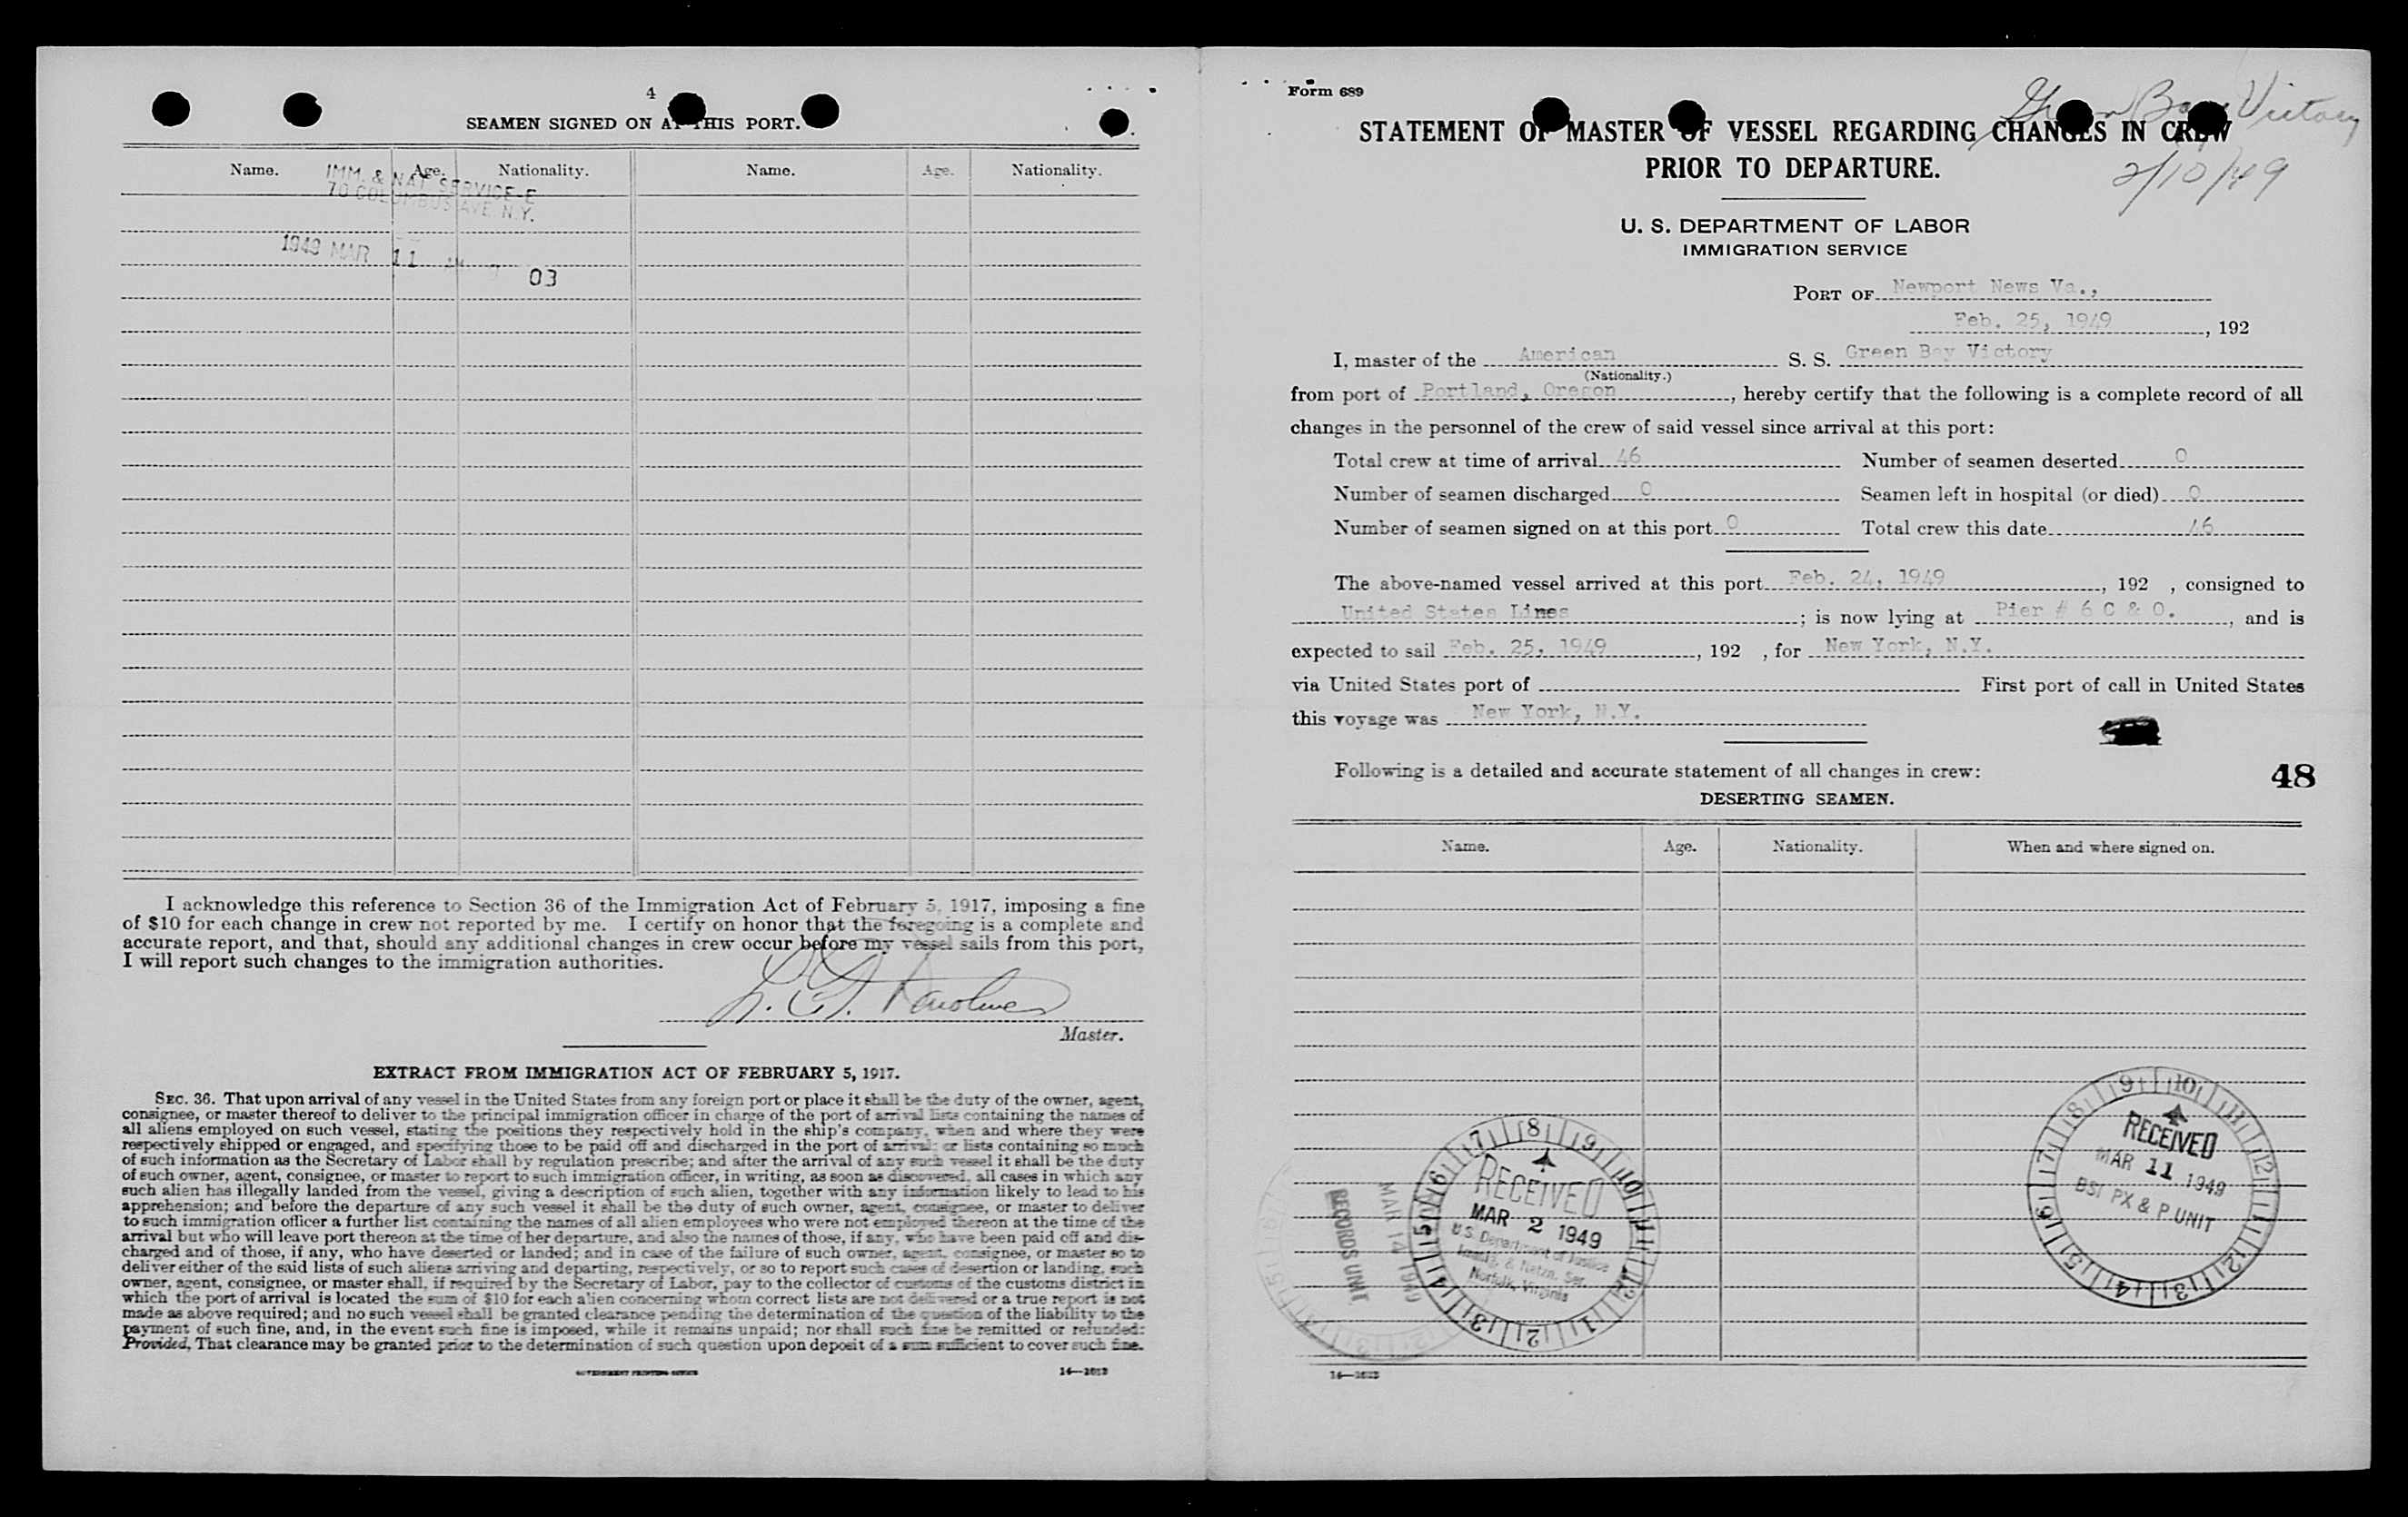 4
SEAMEN SIGNED ON AT THIS PORT.
Name. Age. Nationality. Name. Age. Nationality.
IMM. & NAT SERVICE-E
70 COLUMBUS AVE. N.Y.
1949 MAR 11 03
I acknowledge this reference to Section 36 of the Immigration Act of February 5, 1917, imposing a fine
of $10 for each change in crew not reported by me. I certify on honor that the foregoing is a complete and
accurate report, and that, should any additional changes in crew occur before my vessel sails from this port,
I will report such changes to the immigration authorities.
Master.
EXTRACT FROM IMMIGRATION ACT OF FEBRUARY 5, 1917.
SEC. 36. That upon arrival of any vessel in the United States from any foreign port or place it shall be the duty of the owner, agent,
consignee, or master thereof to deliver to the principal immigration officer in charge of the port of arrival lists containing the names of
all aliens employed on such vessel, stating the positions they respectively hold in the ship's company, when and where they were
respectively shipped or engaged, and specifying those to be paid off and discharged in the port of arrival; or lists containing so much
of such information as the Secretary of Labor shall by regulation prescribe; and after the arrival of any such vessel it shall be the duty
of such owner, agent, consignee, or master to report to such immigration officer, in writing, as soon as discovered, all cases in which any
such alien has illegally landed from the vessel, giving a description of such alien, together with any information likely to lead to his
apprehension; and before the departure of any such vessel it shall be the duty of such owner, agent, consignee, or master to deliver
to such immigration officer a further list containing the names of all alien employees who were not employed thereon at the time of the
arrival but who will leave port thereon at the time of her departure, and also the names of those, if any, who have been paid off and dis-
charged and of those, if any, who have deserted or landed; and in case of the failure of such owner, agent, consignee, or master so to
deliver either of the said lists of such aliens arriving and departing, respectively, or so to report such cases of desertion or landing, such
owner, agent, consignee, or master shall, if required by the Secretary of Labor, pay to the collector of customs of the customs district in
which the port of arrival is located the sum of $10 for each alien concerning whom correct lists are not delivered or a true report is not
made as above required; and no such vessel shall be granted clearance pending the determination of the question of the liability to the
payment of such fine, and, in the event such fine is imposed, while it remains unpaid; nor shall such fine be remitted or refunded:
Provided, That clearance may be granted prior to the determination of such question upon deposit of a sum sufficient to cover such fine.
GOVERNMENT PRINTING OFFICE
Form 689
Green Bay Victory
2/10/49
STATEMENT OF MASTER OF VESSEL REGARDING CHANGES IN CREW
PRIOR TO DEPARTURE.
U. S. DEPARTMENT OF LABOR
IMMIGRATION SERVICE
PORT OF Newport News Va.,
Feb. 25, 1949, 192
I, master of the American S. S. Green Bay Victory
(Nationality.)
from port of Portland, Oregon, hereby certify that the following is a complete record of all
changes in the personnel of the crew of said vessel since arrival at this port:
Total crew at time of arrival 46 Number of seamen deserted 0
Number of seamen discharged 0 Seamen left in hospital (or died) 0
Number of seamen signed on at this port 0 Total crew this date 46
The above-named vessel arrived at this port Feb. 24, 1949, 192 , consigned to
United States Lines; is now lying at Pier # 6 C & O., and is
expected to sail Feb. 25, 1949, 192 , for New York, N.Y.
via United States port of First port of call in United States
this voyage was New York, N.Y.
Following is a detailed and accurate statement of all changes in crew:
48
DESERTING SEAMEN.
Name. Age. Nationality. When and where signed on.
RECEIVED
MAR 11 1949
BSI PX & P UNIT
RECEIVED
MAR 2 1949
U.S. Department of Justice
Immig. & Natzn. Ser.
Norfolk, Virginia
RECORDS UNIT
MAR 14 1949